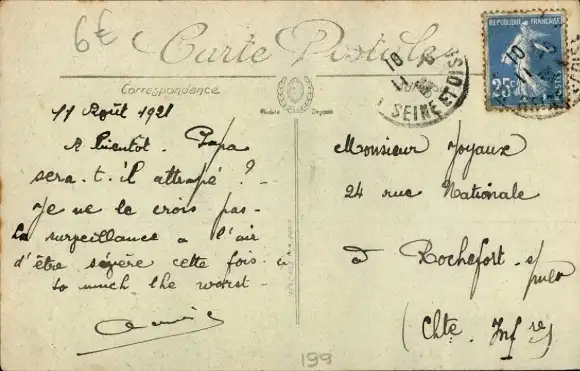 6€
Carte Postale
Correspondance
11 Août 1921
A bientôt. Papa
sera-t-il attrapé ?
Je ne le crois pas -
La surveillance a l'air
d'être sévère cette fois-ci
so much the worst -
Monsieur Joyaux
24 rue Nationale
à Rochefort s/
mer
(Chte. Infre)
REPUBLIQUE FRANÇAISE
25c
SEINE ET OISE
199